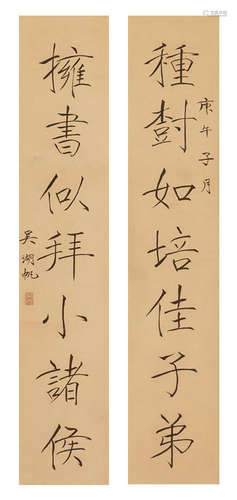 種樹如培佳子弟
庚午子月
擁書似拜小諸侯
吳湖帆